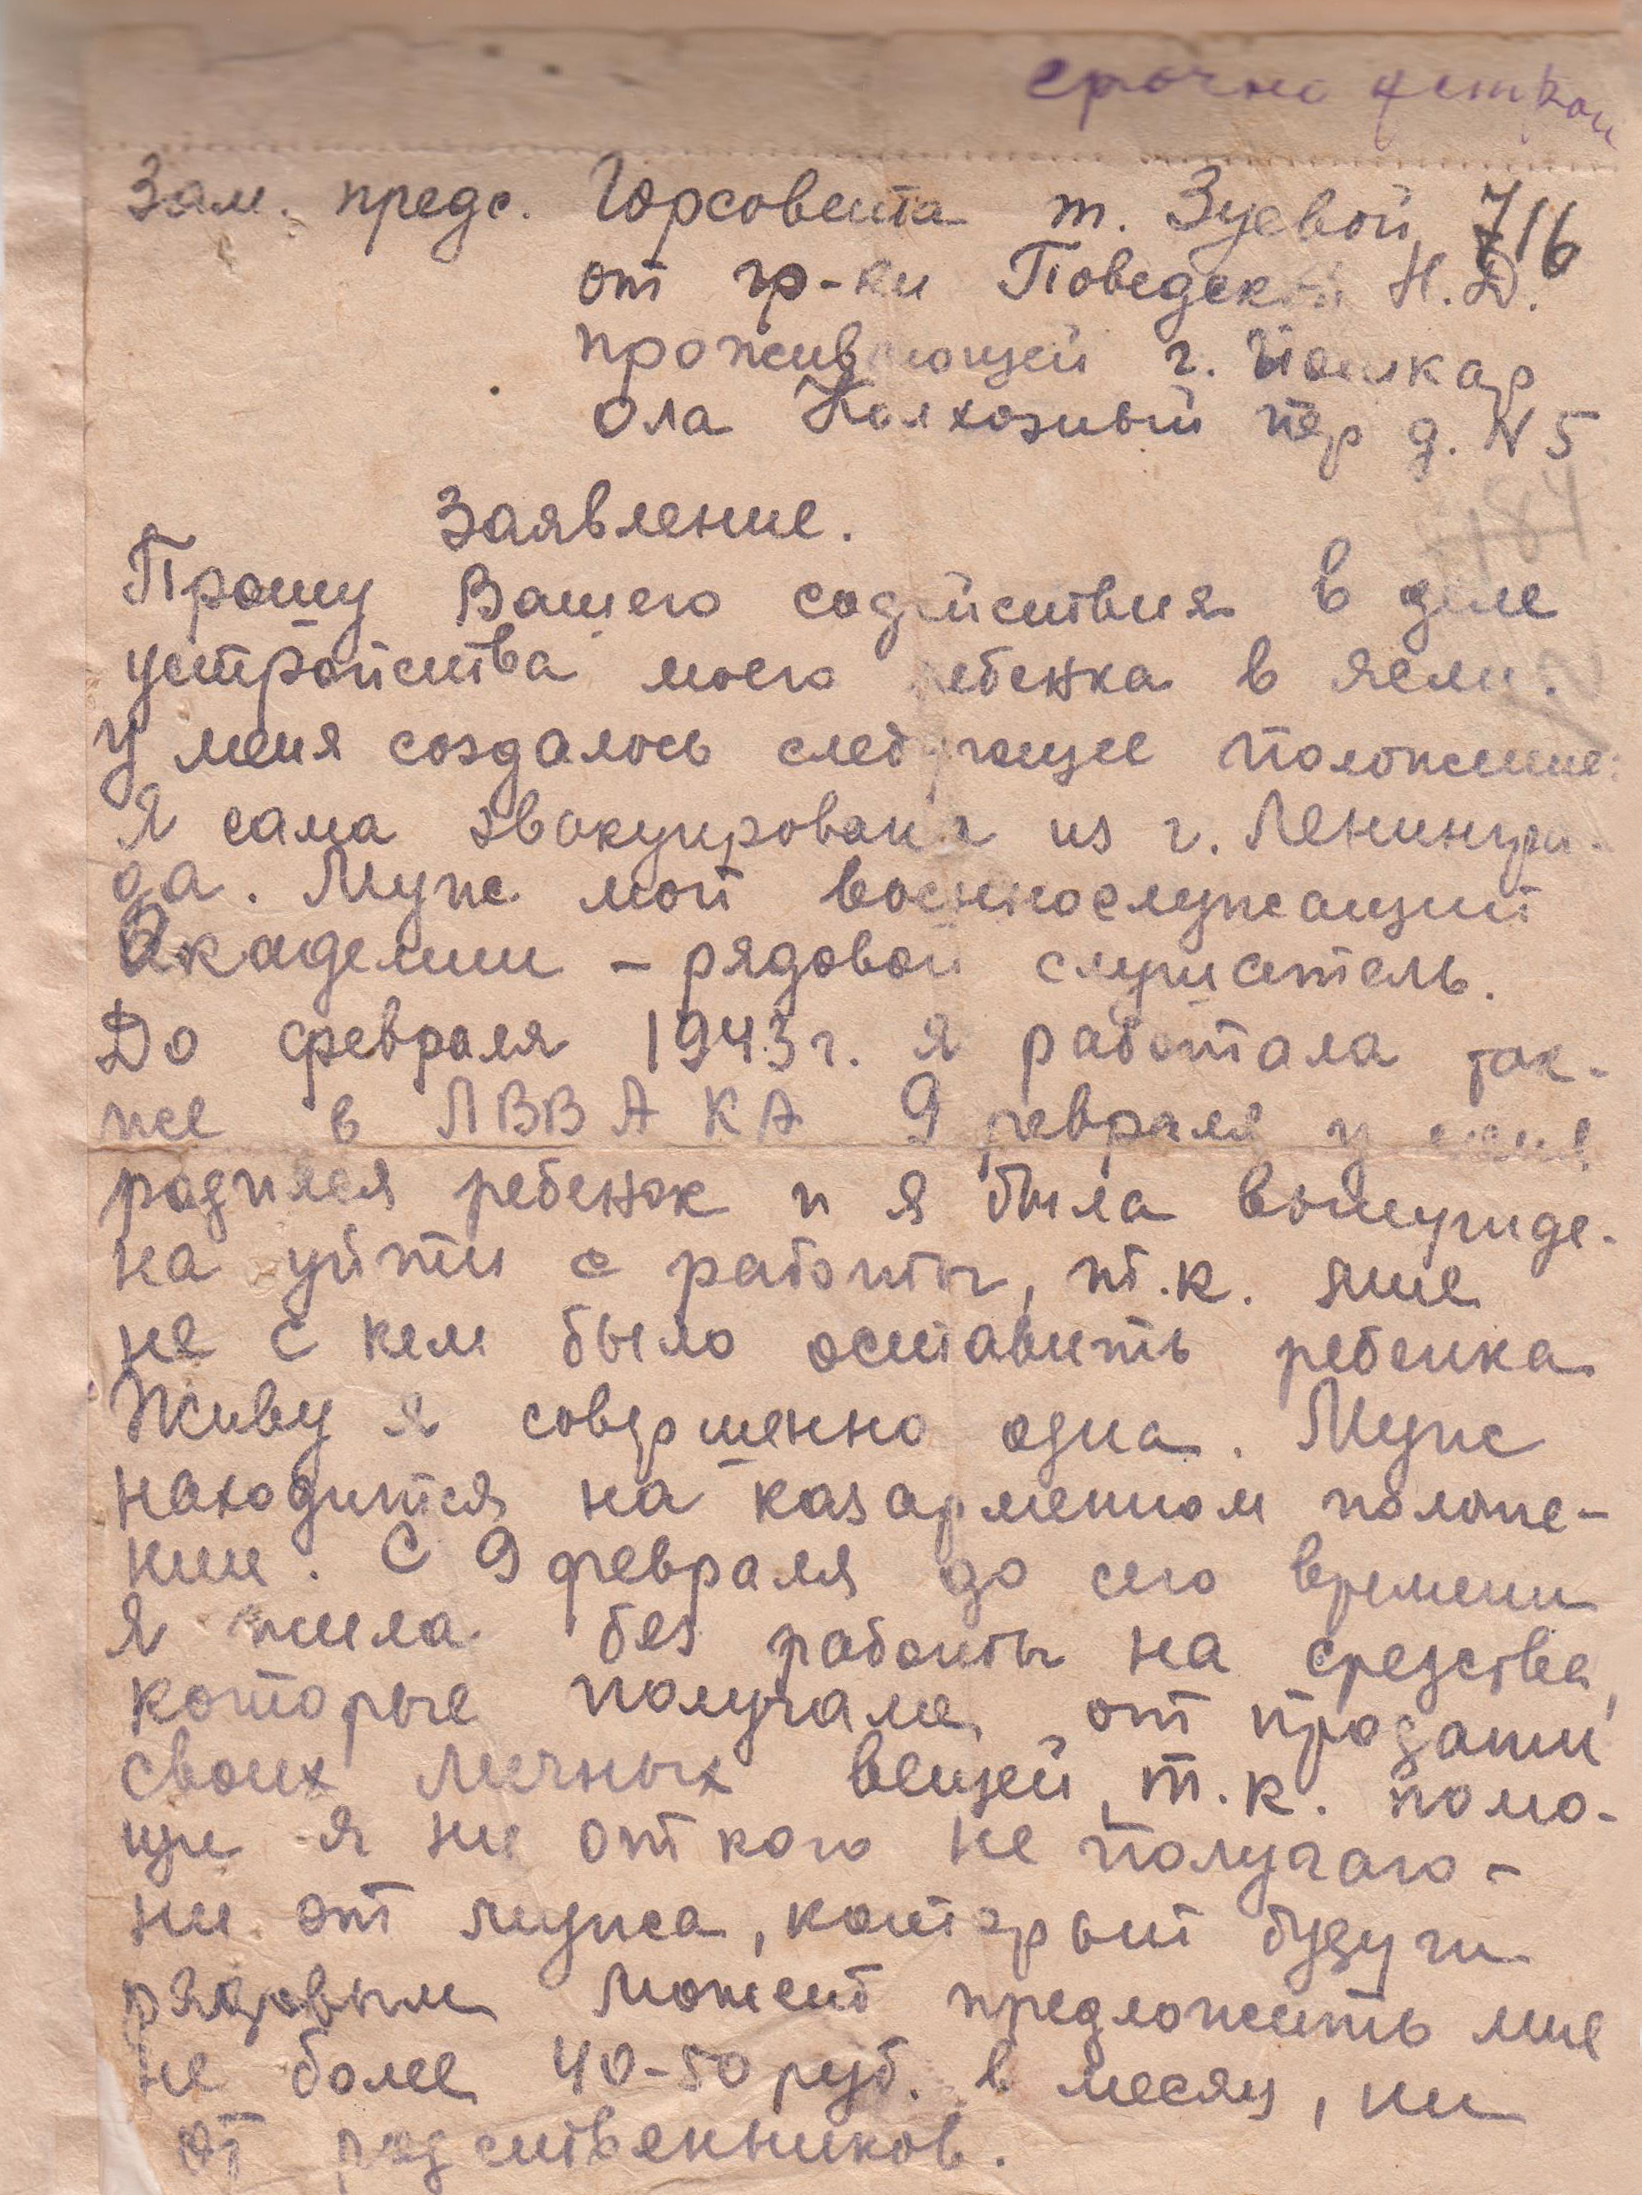 срочно
Зам. предс. Горсовета т. Зуевой 7/6
от гр-ки Поведской Н.Д.
проживающей г. Йошкар
Ола Колхозный пер д. N 5
184
Заявление.
Прошу Вашего содействия в деле
устройства моего ребенка в ясли.
У меня создалось следующее положение:
Я сама эвакуирована из г. Ленингра-
да. Муж мой военнослужащий
Академии – рядовой слушатель.
До февраля 1943 г. я работала так-
же в ЛВВАКА 9 февраля у меня
родился ребенок и я была вынужде-
на уйти с работы, т.к. мне
не с кем было оставить ребенка
Живу я совершенно одна. Муж
находится на казарменном положе-
нии. С 9 февраля до сего времени
я жила без работы на средства,
которые получала от продажи
своих личных вещей, т.к. помо-
щи я ни от кого не получаю –
ни от мужа, который будучи
рядовым может предложить мне
не более 40-50 руб. в месяц, ни
от родственников.